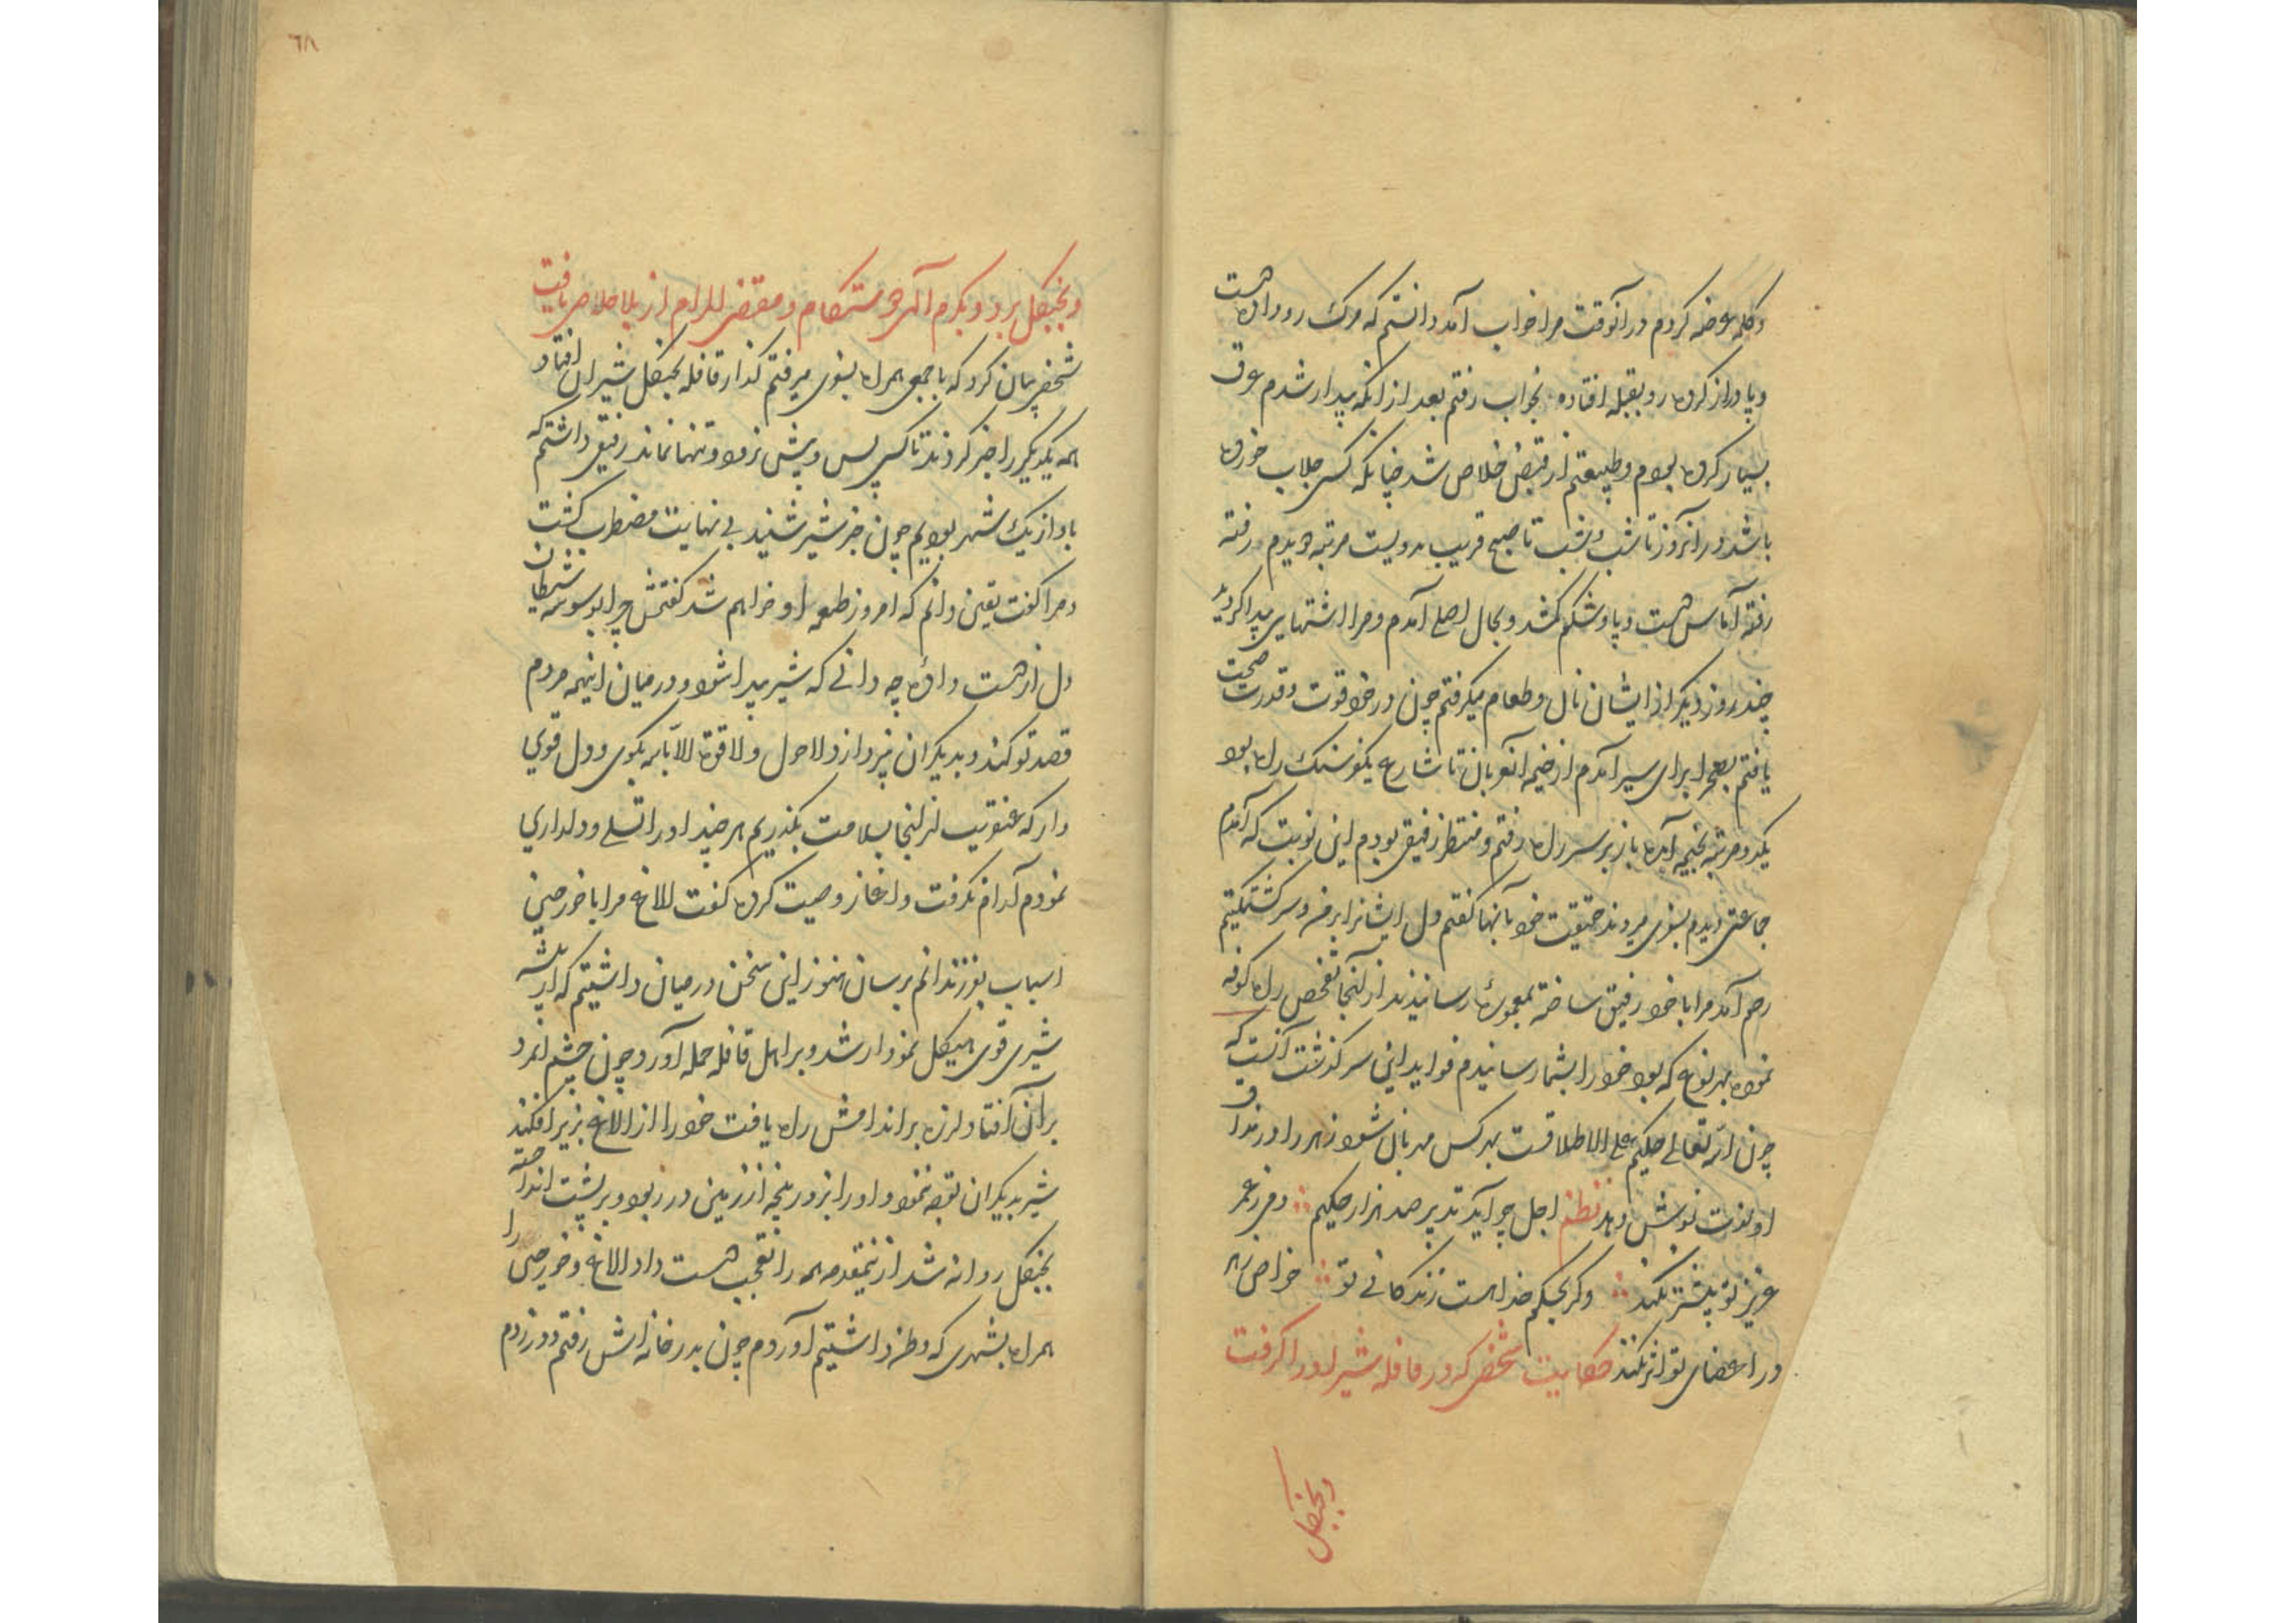 وکلمه عرضه کردم در آنوقت مرا خواب آمد دانستم که مرک رو داده است
و پا دراز کرده رو بقبله افتاده بخواب رفتم بعد از انکه بیدار شدم عرق
بسیار کرده بودم و طبیعتم از قبض خلاص شد چنانکه کسی جلاب خورده
باشد در آنروز تا شب و شب تا صبح قریب بدویست مرتبه دویدم رفته
رفته آماس دست و پا و شکم کم شد و بحال اصلی آمدم و مرا اشتهایی پیدا کردید
چند روز دیکر از ایشان نان و طعام میکرفتم چون در خود قوت و قدرت صحت
یافتم بصحرا برای سیر آمدم از خیمه آنعربان تا شارع یکفرسنک راه بود
یکدو مرتبه بخیمه آمده باز بر سر راه رفتم و منتظر رفیق بودم این نوبت که آمدم
جماعتی دیدم بسوی میروند حقیقت خود بآنها کفتم دل ایشانرا بر من و سرکشتکیم
رحم آمد مرا با خود رفیق ساخته بمعموره رسانیدند از آنجا تفحص راه کوفه
نموده بهر نوع که بود خود را بشما رسانیدم فواید این سرکذشت آنست که
چون الله تعالی حکیم علی الاطلاقست بهر کس مهربان شود زهر را در مذاق
او لذت نوش دهد نظم اجل چو آید تدبیر صد هزار حکیم دمی ز عمر
عزیز تو بیشتر نکند وکر بحکم خدا هست زندکانی تو خواص زهر
در اعضای تو اثر نکند حکایت شخصی که در قافله شیر او را کرفت
و بجنکل
٦٨
و بجنکل برد و بکرم آلهی دوستکام و مقضی المرام از بلا خلاص یافت
شخصی بیان کرد که با جمعی همراه بسوی میرفتم کذار قافله بجنکل شیران افتاد
همه یکدیکر را خبر کردند تا کسی پس و پیش نرود و تنها نماند رفیقی داشتم که
با او از یک شهر بودیم چون خبر شیر شنید بی نهایت مضطرب کشت
و مرا کفت یقین دانم که امروز طعمه او خواهم شد کفتمش چرا بوسوسه شیطان
دل از دست داده چه دانی که شیر پیدا شود و در میان اینهمه مردم
قصد تو کند و بدیکران نپردازد لا حول و لا قوة الا بالله بکوی و دل قوی
دار که عنقریب از اینجا بسلامت بکذریم هر چند او را تسلی و دلداری
نمودم آرام نکرفت و آغاز وصیت کرده کفت الاغ مرا با خورجین
اسباب بفرزندانم برسان هنوز این سخن در میان داشتیم که از بیشه
شیری قوی هیکل نمودار شد و بر اهل قافله حمله آورد چون چشم انمرد
بر آن افتاد لرزه بر اندامش راه یافت خود را از الاغ بزیر افکند
شیر بدیکران توجه ننمود و او را بزور پنجه از زمین در ربود و بر پشت انداخته
بجنکل روانه شد ازینمقدمه همه را تعجب دست داد الاغ و خورجین را
همراه بشهری که وطن داشتیم آوردم چون بدر خانه اش رفتم و در زدم